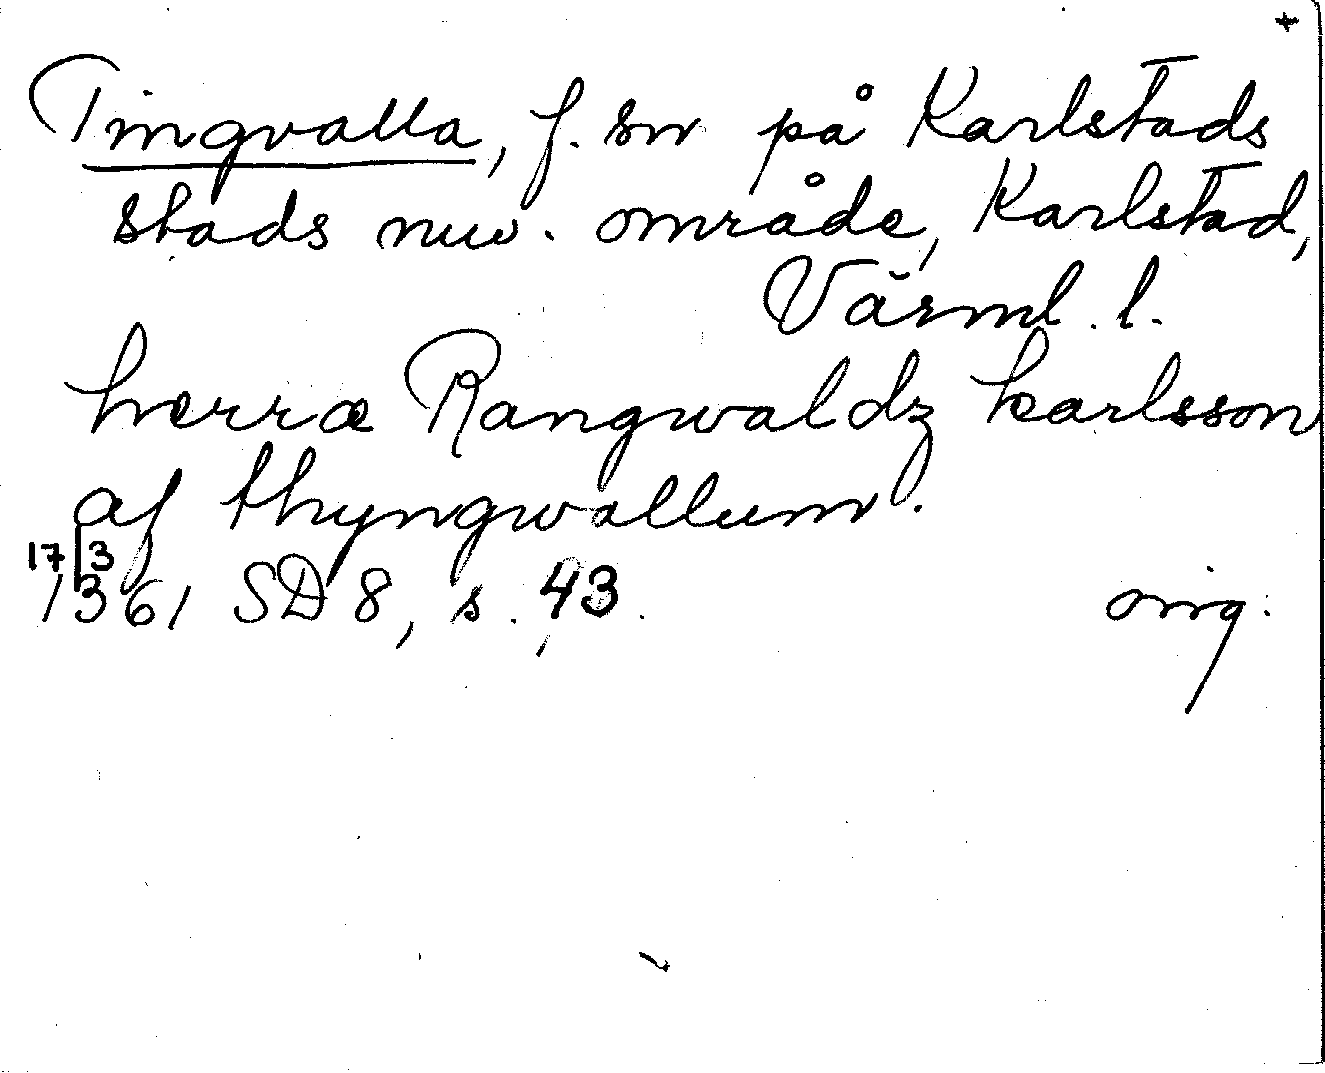 +
Tingvalla, f. sn på Karlstads
stads nuv. område, Karlstad,
Värml. l.
herra Rangwaldz karlsson
af thyngwallum.
17/3
1361 SD 8, s. 43. orig.